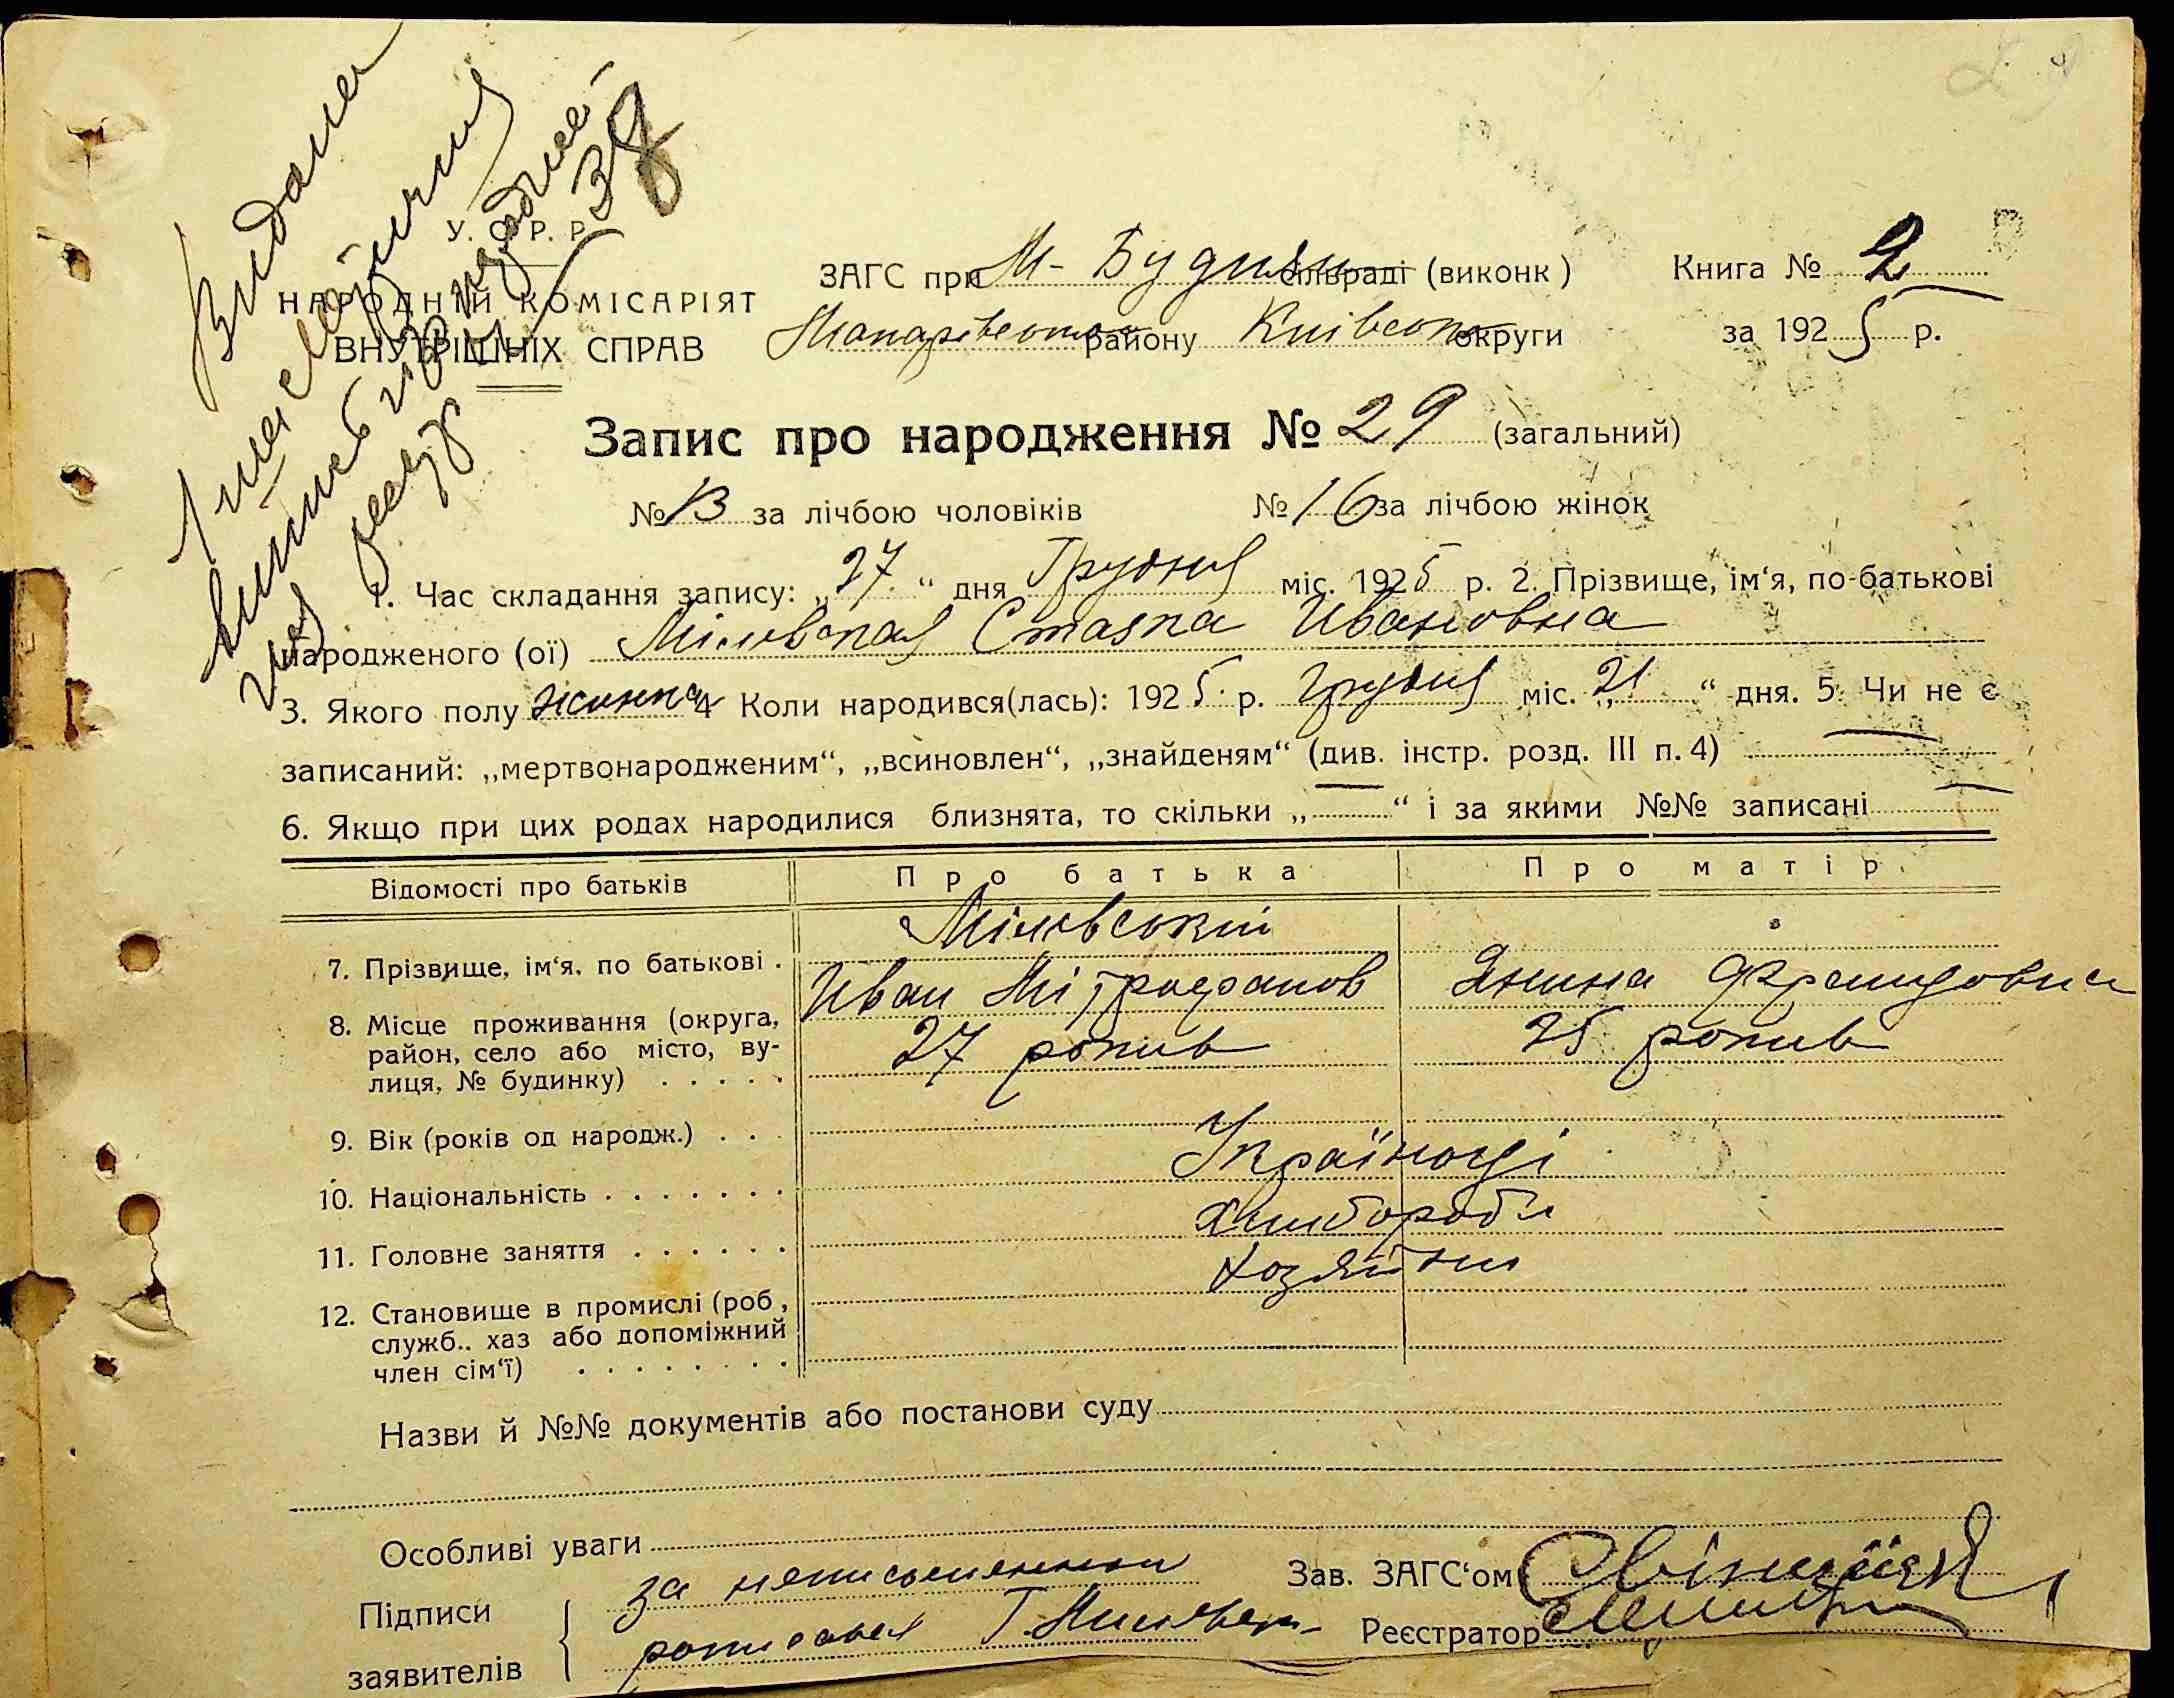 Видана
У. С. Р. Р.
НАРОДНІЙ КОМІСАРІЯТ
ВНУТРІШНІХ СПРАВ
38
ЗАГС при М- Будян сільраді (виконк)
Книга № 2
Макарівсько району Київсько округи
за 1925 р.
Запис про народження № 29 (загальний)
№ 13 за лічбою чоловіків № 16 за лічбою жінок
1. Час складання запису: „27" дня Грудня міс. 1925 р. 2. Прізвище, ім'я, по-батькові
народженого (ої) Стазка Ивановна
3. Якого полу жинка 4 Коли народився(лась): 1925 р. Грудня міс. „21" дня. 5. Чи не є
записаний: „мертвонародженим", „всиновлен", „знайденям" (див. інстр. розд. III п. 4) —
6. Якщо при цих родах народилися близнята, то скільки „—" і за якими №№ записані —
Відомості про батьків Про батька Про матір
7. Прізвище, ім'я, по батькові .
Иван Мітрофанов Янина Францовна
8. Місце проживання (округа,
район, село або місто, ву-
лиця, № будинку) . . . . .
27 рокив 25 рокив
9. Вік (років од народж.) . . .
10. Національність . . . . . . . Україночі
11. Головне заняття . . . . . . Хлибороби
12. Становище в промислі (роб,
служб.. хаз або допоміжний
член сім'ї) . . . . . . . .
Хозяйни
Назви й №№ документів або постанови суду
Особливі уваги
Підписи
заявителів
за неписьменного
росписався Г.
Зав. ЗАГС'ом
Реєстратор